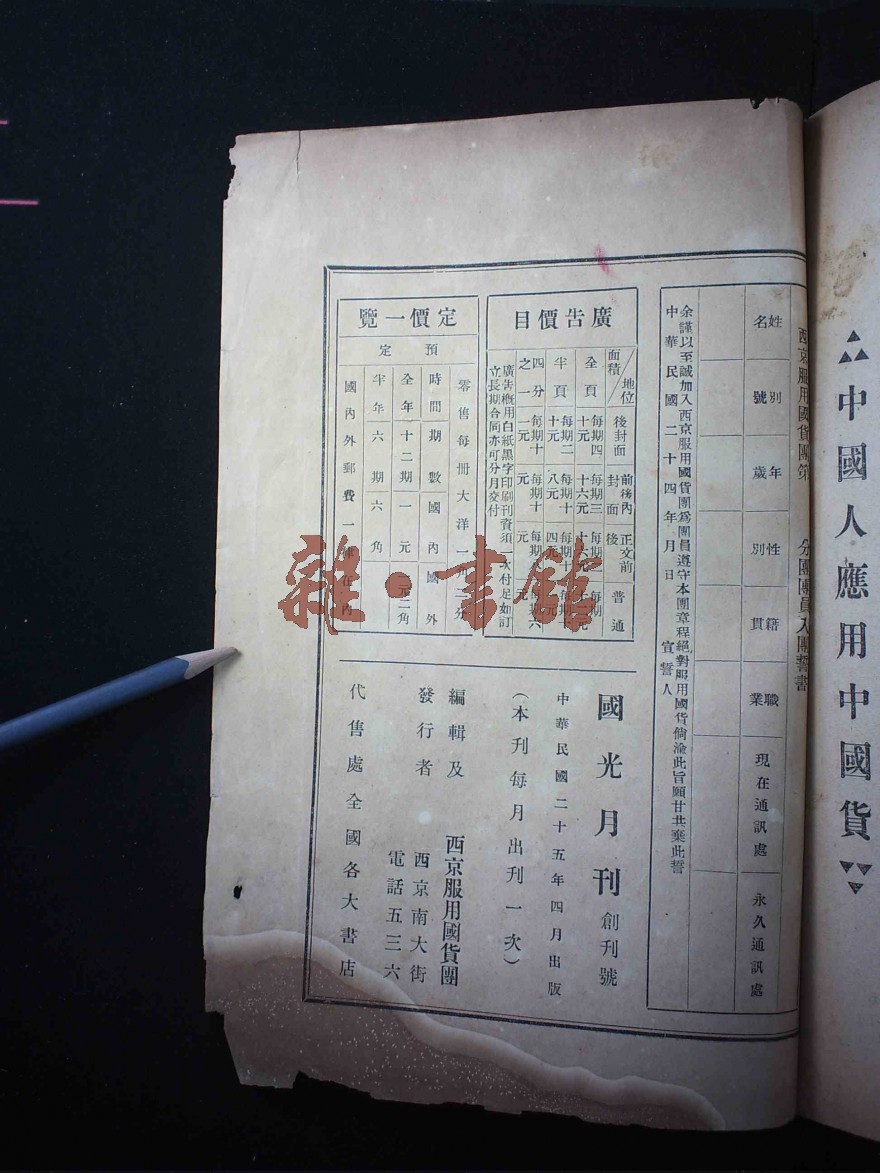 中國人應用中國貨
西京服用國貨團第　　分團團員入團誓書
姓名
別號
年歲
性別
籍貫
職業
現在通訊處
永久通訊處
余謹以至誠加入西京服用國貨團為團員遵守本團章程絕對服用國貨倘渝此旨願甘共棄此誓
宣誓人
中華民國二十四年月日
廣告價目
地位
面積
後封面
前後內封面
正文前後
普通
全頁
每期四十元
每期三十六元
半頁
每期二十元
每期十八元
四分之一
每期十一元
每期十元
廣告概用白紙黑字印刷刊費須一次付足如訂
立長期合同亦可分月交付
定價一覽
零售每冊大洋一角二分
預定
時間
期數
國內
國外
全年
十二期
一元
元二角
半年
六期
六角
國內外郵費一
在內
國光月刊 創刊號
中華民國二十五年四月出版
（本刊每月出刊一次）
編輯及
發行者
西京服用國貨團
西京南大街
電話五三六
代售處全國各大書店
雜·書館